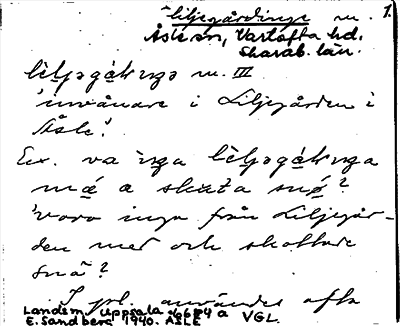 liljegårdinge m. 1.
Åsle sn, Vartofta hd.
Skarab. län.
m. III
'invånare i Liljegården i
Åsle'.
Ex. va inga
må a skata snø?
'voro inga från Liljegår-
den med och skottade
snö?
I pl. användes ofta
Landsm. Uppsala 6684 a VGL.
E. Sandberg 1940. ÅSLE